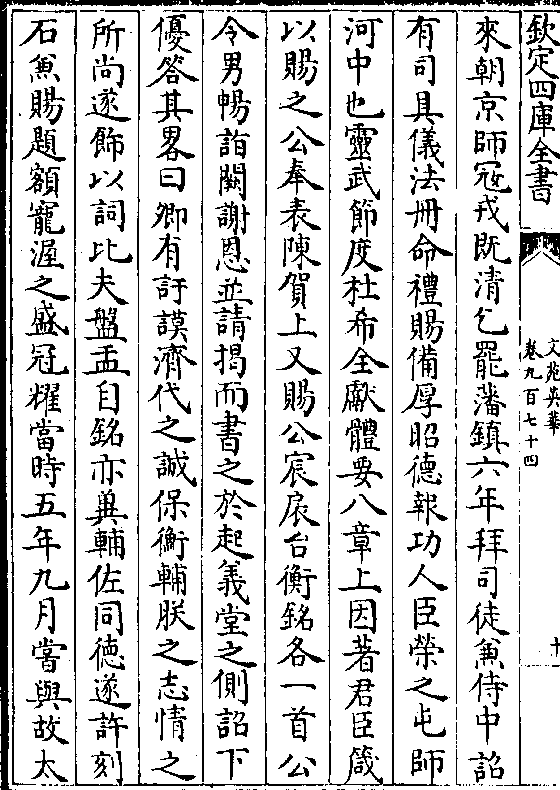 欽定四庫全書
文苑英華
卷九百七十四
十
來朝京師冦戎既清乞罷藩鎮六年拜司徒兼侍中詔
有司具儀法冊命禮賜備厚昭德報功人臣榮之屯師
河中也靈武節度杜希全獻體要八章上因著君臣箴
以賜之公奉表陳賀上又賜公宸扆台衡銘各一首公
令男暢詣闕謝恩並請揭而書之於起義堂之側詔下
優答其畧曰卿有訏謨濟代之誠保衡輔朕之志情之
所尚遂飾以詞比夫盤盂自銘亦兾輔佐同徳遂許刻
石兼賜題額寵渥之盛冠耀當時五年九月嘗與故太